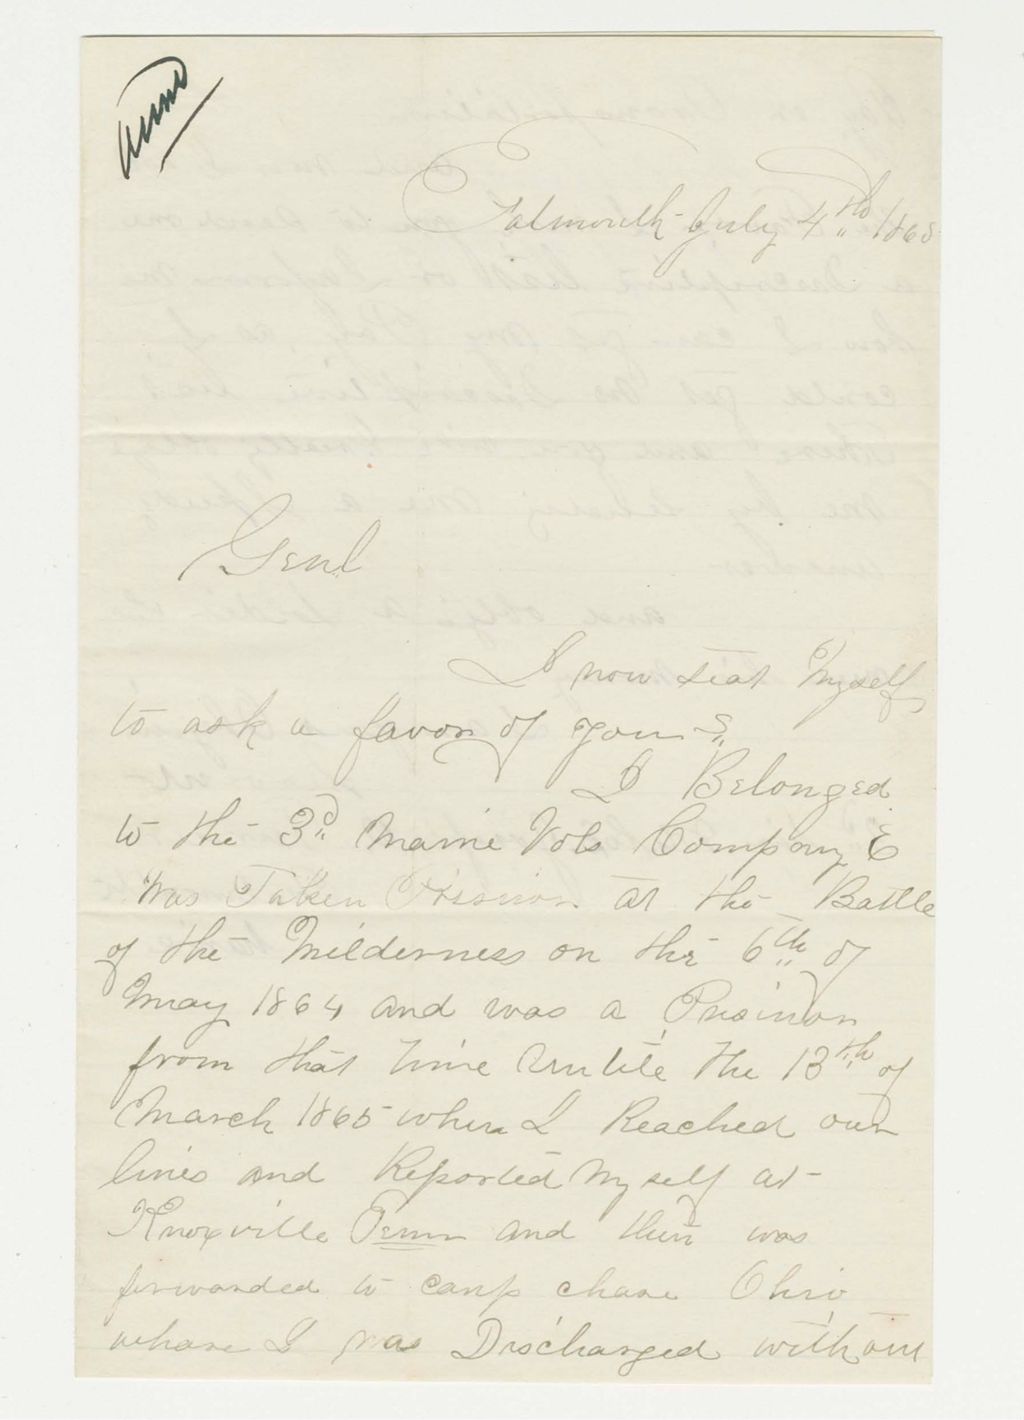 Falmouth July 4th 1865
Genl
I now seat Myself
to ask a favor of you
I Belonged
to the 3d Maine Vols Company E
Was Taken Prisinor at the Battle
of the Wilderness on the 6th of
May 1864 and was a Prisinor
from that time untile the 13th of
March 1865 when I Reached our
lines and Reported Myself at
Knoxville Tenn and then was
forwarded to camp chase Ohio
whare I was Discharged without